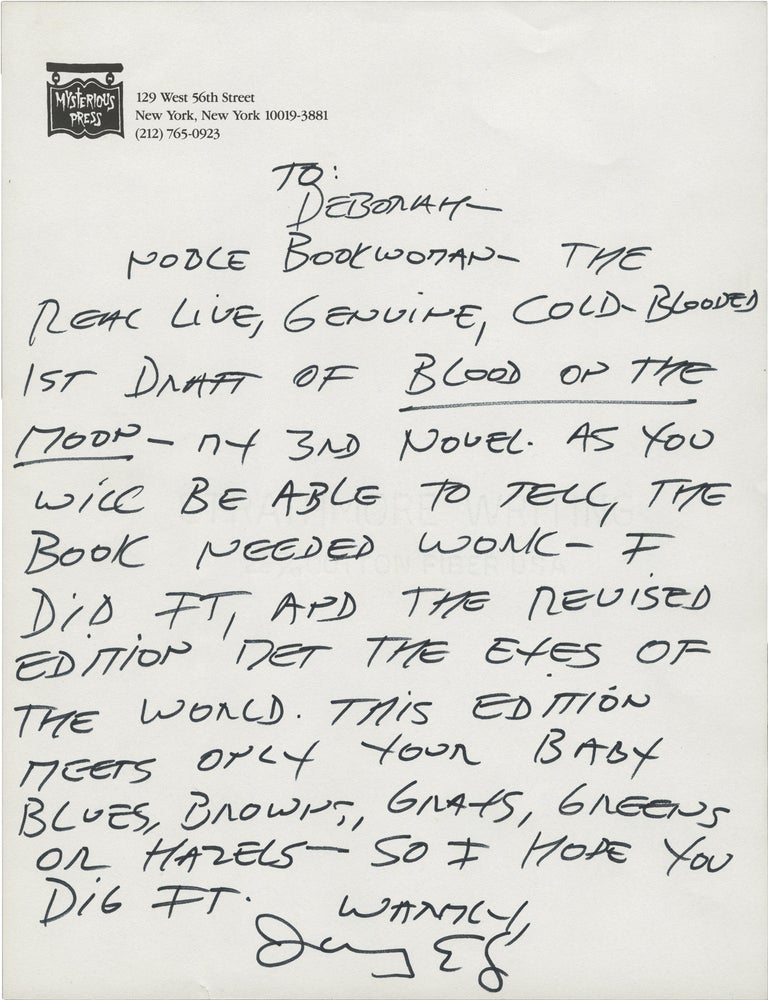 MYSTERIOUS
PRESS
129 West 56th Street
New York, New York 10019-3881
(212) 765-0923
TO:
DEBORAH—
NOBLE BOOKWOMAN— THE
REAL LIVE, GENUINE, COLD-BLOODED
1ST DRAFT OF BLOOD ON THE
MOON— MY 3RD NOVEL. AS YOU
WILL BE ABLE TO TELL, THE
BOOK NEEDED WORK— I
DID IT, AND THE REVISED
EDITION MET THE EYES OF
THE WORLD. THIS EDITION
MEETS ONLY YOUR BABY
BLUES, BROWNS, GRAYS, GREENS
OR HAZELS— SO I HOPE YOU
DIG IT.
WARMLY,